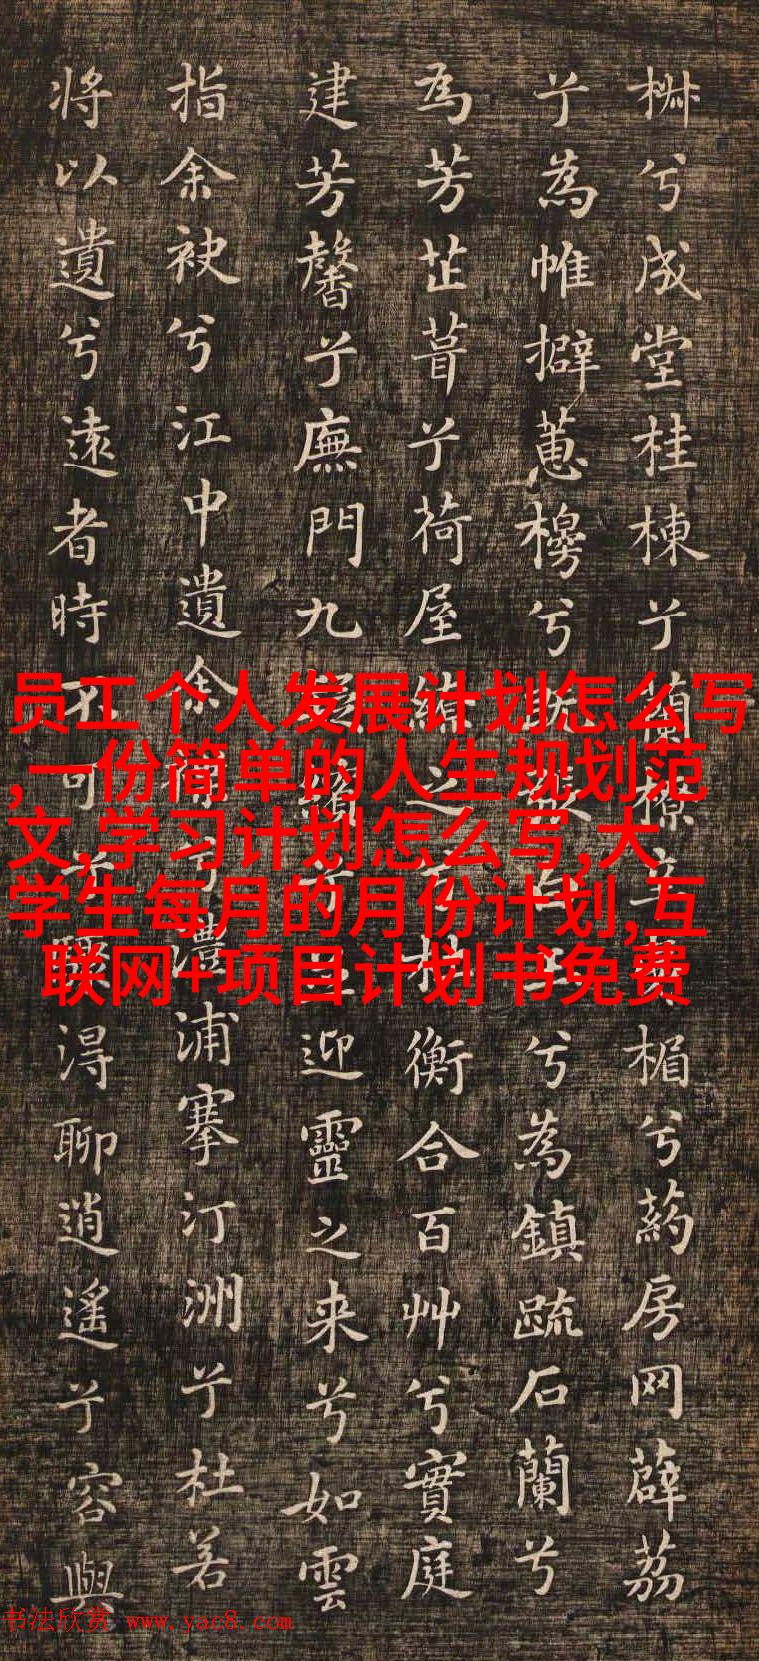 兮成堂桂棟兮蘭橑辛夷楣兮葯房网薜荔
兮為帷擗蕙櫋兮既張白玉兮為鎮疏石蘭兮
為芳芷葺兮荷屋繚之兮杜衡合百艸兮實庭
建芳馨兮廡門九嶷繽兮並迎靈之来兮如雲
指余袂兮江中遺余褋兮澧浦搴汀洲兮杜若
将以遺兮遠者時不可兮驟得聊逍遙兮容與
员工个人发展计划怎么写
,一份简单的人生规划范
文,学习计划怎么写,大
学生每月的月份计划,互
联网+项目计划书免费
书法欣赏 www.yac8.com